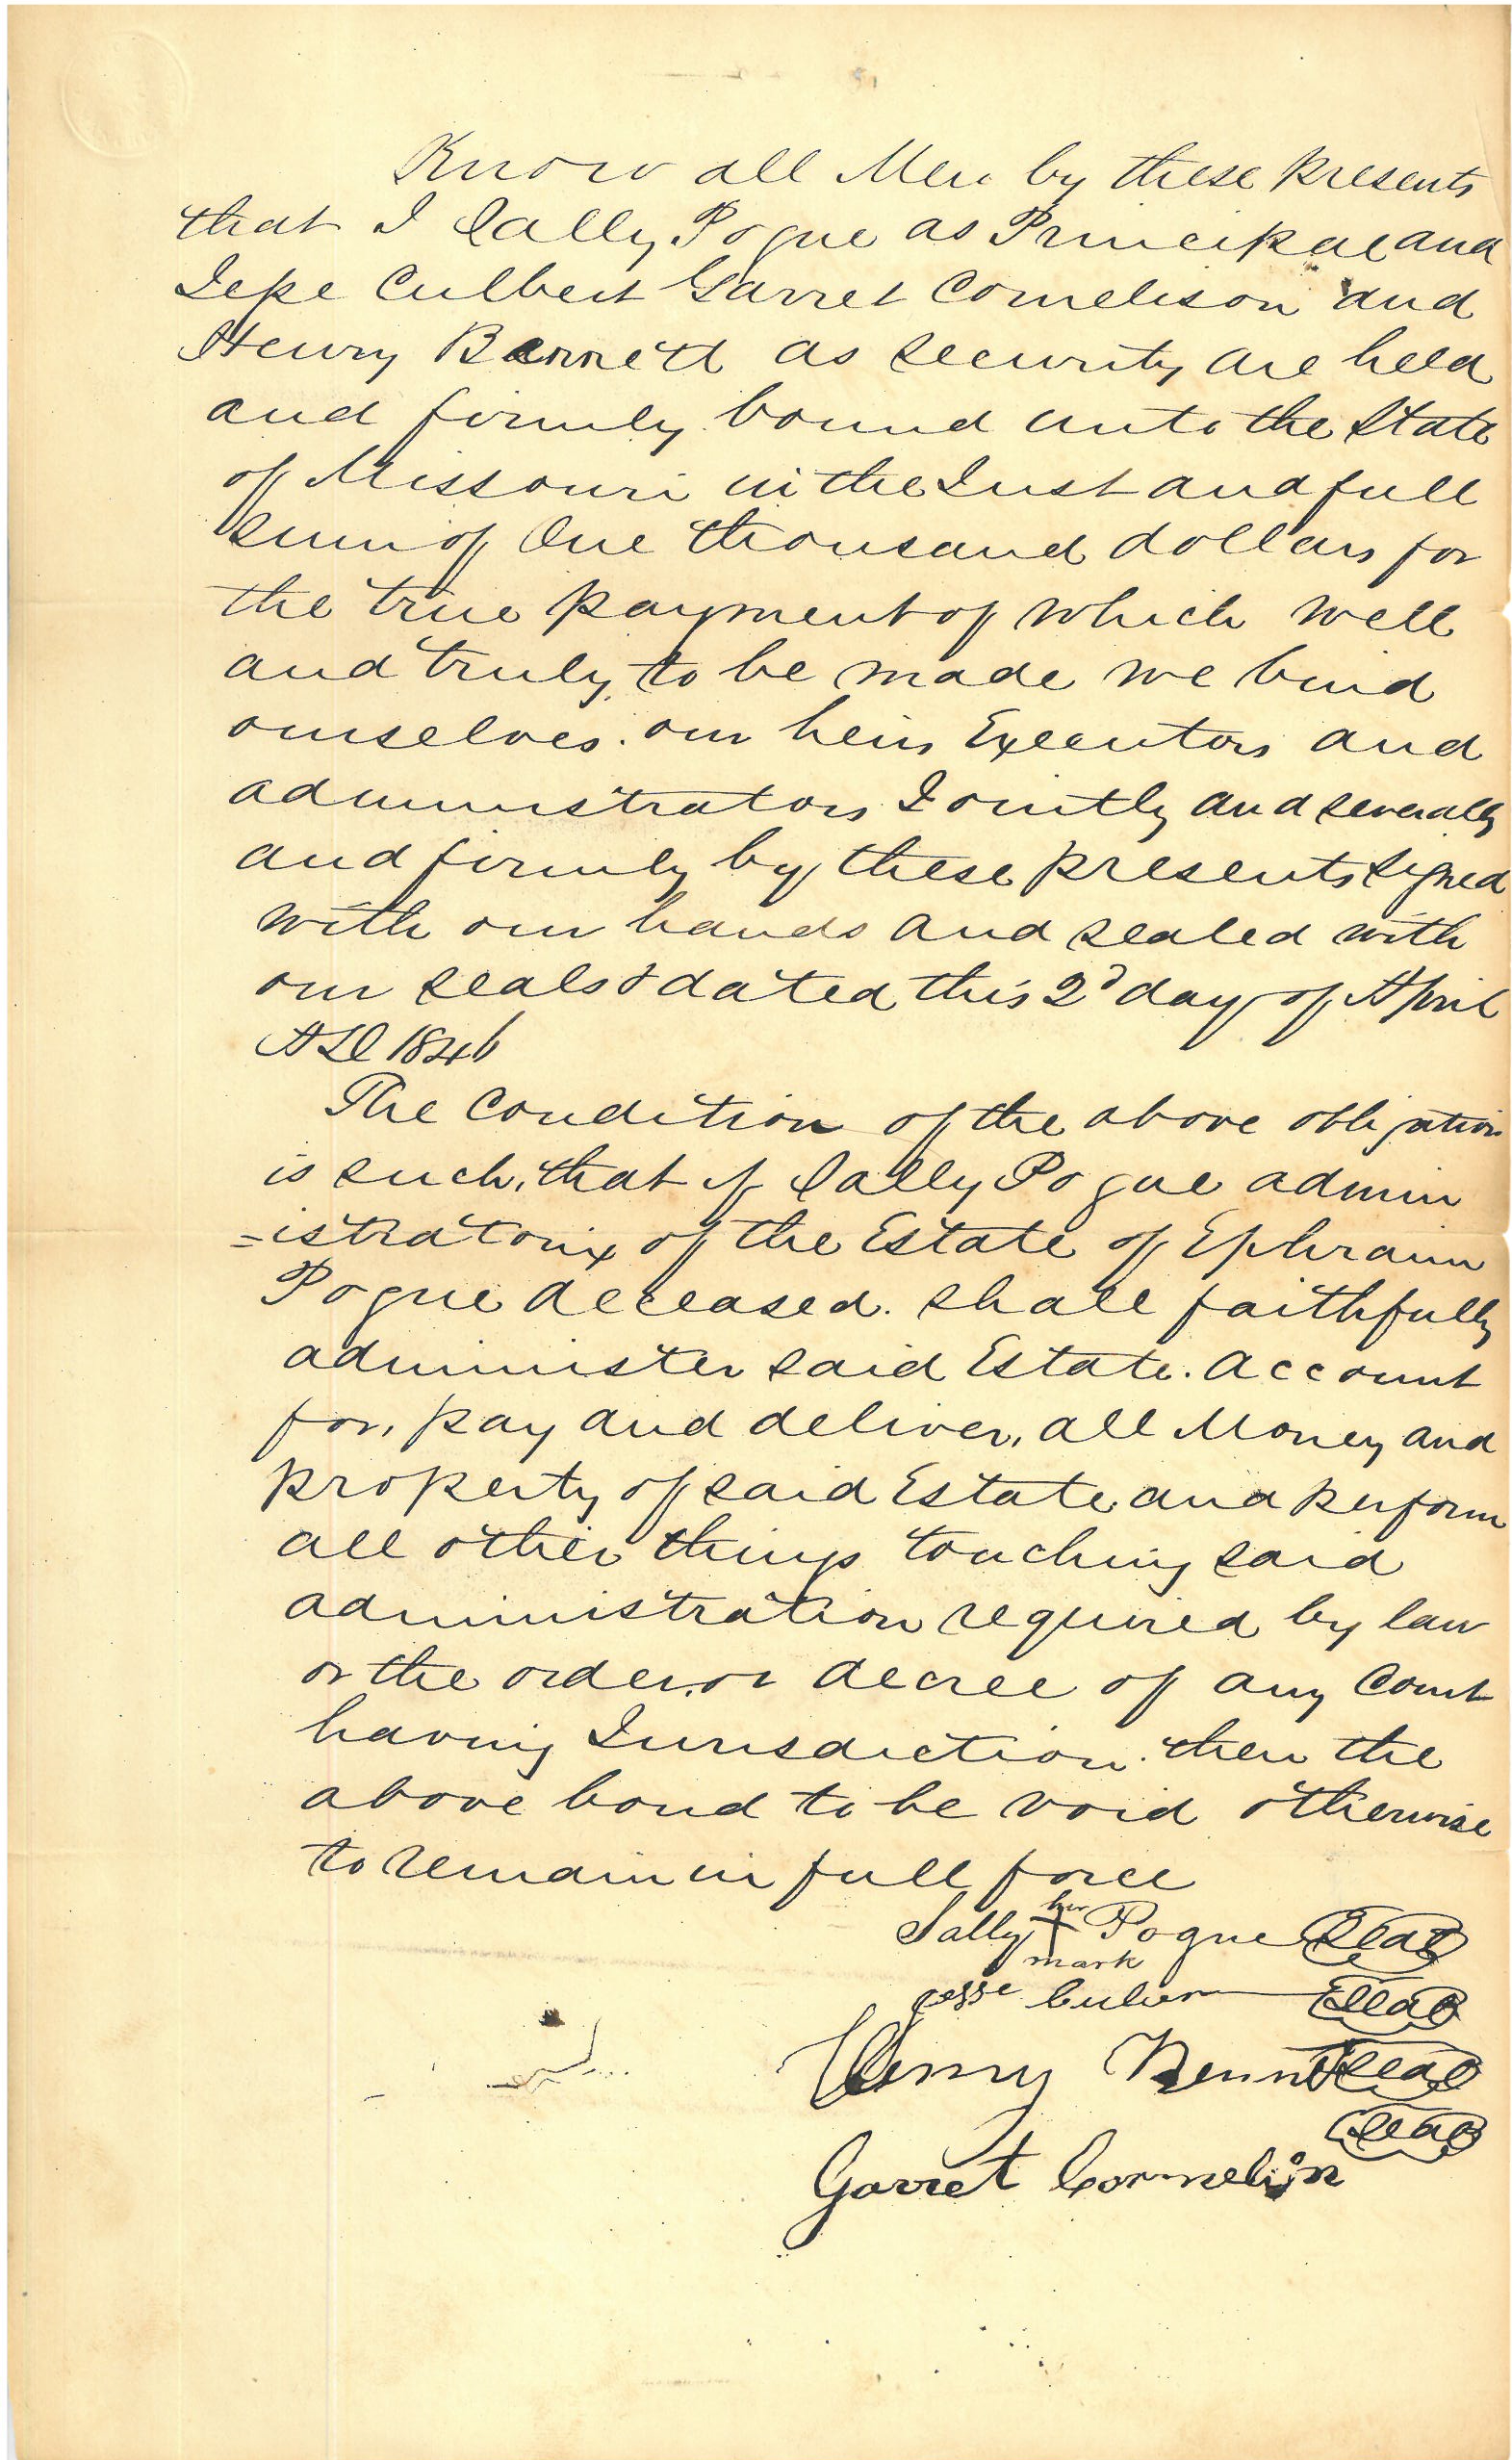 Know all Men by these presents
that I Sally Pogue as Principal and
Jesse Culbert Garret Cornelison and
Henry Bennett as security are held
and firmly bound unto the State
of Missouri in the Just and full
sum of One thousand dollars for
the true payment of which well
and truly to be made we bind
ourselves. our heirs Executors and
administrators Jointly and severally
and firmly by these presents signed
with our hands and sealed with
our seals & dated this 2d day of April
AD 1846
The Condition of the above obligation
is such, that if Sally Pogue admin
=istratorix of the Estate of Ephraim
Pogue deceased. shall faithfully
administer said Estate. account
for, pay and deliver, all Money and
property of said Estate and perform
all other things touching said
administration required by law
or the order or decree of any Court
having Jurisdiction. then the
above bond to be void otherwise
to remain in full force
Sally her X mark Pogue Seal
Jesse Seal
Henry Bennett Seal
Seal
Garret Cornelison